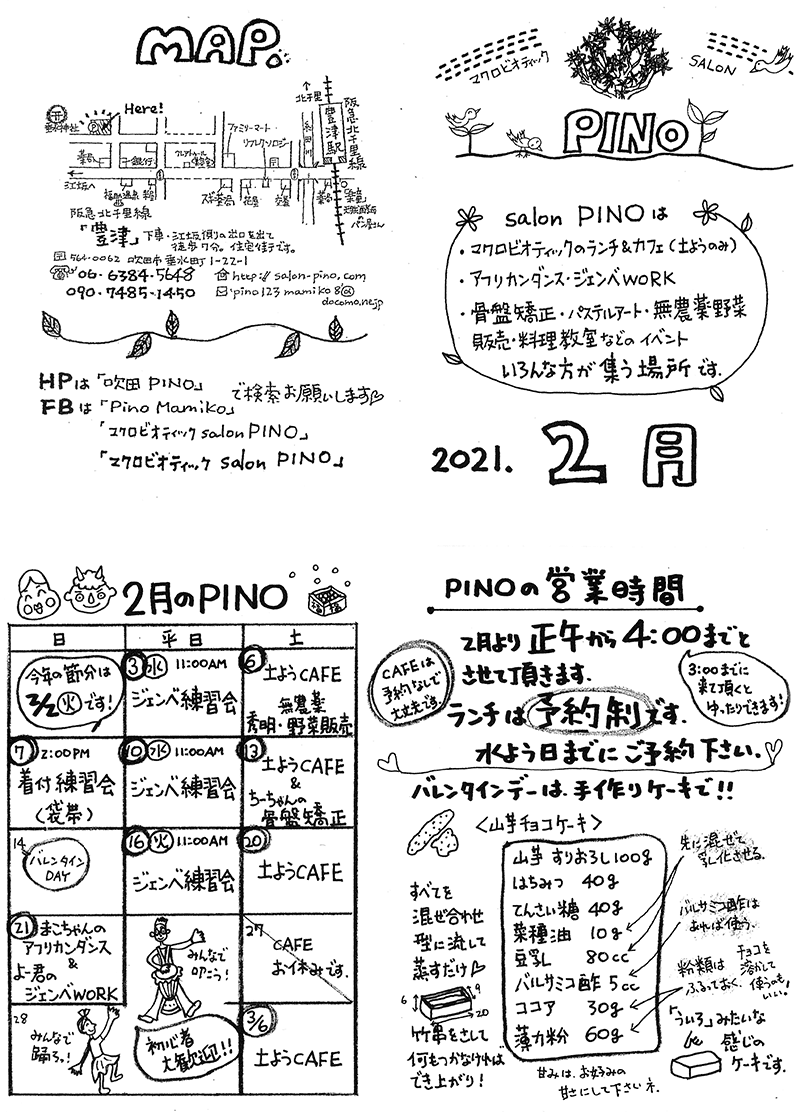 MAP.
Here!
ファミリーマート
リフレクソロジー
北千里
豊津駅
阪急北千里線
銀行
江坂へ
阪急北千里線
「豊津」下車・江坂側の出口を出て
徒歩7分。住宅街です。
564-0062 吹田市垂水町1-22-1
06-6384-5648
http://salon-pino.com
090-7485-1450
pino123mamiko8@
docomo.ne.jp
HPは「吹田 PINO」
FBは「Pino Mamiko」
で検索お願いします
「マクロビオティック salon PINO」
「マクロビオティック salon PINO」
マクロビオティック
SALON
PINO
salon PINOは
・マクロビオティックのランチ&カフェ(土ようのみ)
・アフリカンダンス・ジェンベWORK
・骨盤矯正・パステルアート・無農薬野菜
販売・料理教室などの イベント
いろんな方が集う場所です。
2021. 2月
2月のPINO
日 平日 土
今年の節分は
2/2(火)です!
3 水 11:00AM
ジェンベ練習会
6 土ようCAFE
無農薬
秀明・野菜販売
7 2:00PM
着付練習会
(袋帯)
10 水 11:00AM
ジェンベ練習会
13 土ようCAFE
&
ちーちゃんの
骨盤矯正
14
バレンタイン
DAY
16 火 11:00AM
ジェンベ練習会
20
土ようCAFE
21 まこちゃんの
アフリカンダンス
&
よー君の
ジェンベWORK
みんなで
叩こう!
27
CAFE
お休みです.
28
みんなで
踊ろう!
初心者
大歓迎!!
3/6
土ようCAFE
PINOの営業時間
2月より 正午から4:00までと
させて頂きます.
CAFEは
予約なしで
大丈夫です.
3:00までに
来て頂くと
ゆったりできます!
ランチは予約制です.
水よう日までにご予約下さい.
バレンタインデーは、手作りケーキで!!
<山芋チョコケーキ>
山芋 すりおろし100g
はちみつ 40g
てんさい糖 40g
菜種油 10g
豆乳 80cc
バルサミコ酢 5cc
ココア 30g
薄力粉 60g
すべてを
混ぜ合わせ
型に流して
蒸すだけ
6 9 20
竹串をさして
何もつかなければ
でき上がり!
先に混ぜて
乳化させる.
バルサミコ酢は
あれば使う.
粉類は
ふるっておく.
チョコを
溶かして
使うのも
いい!
「ういろ」みたいな
感じの
ケーキです.
甘みは、お好みの
甘さにして下さいネ.